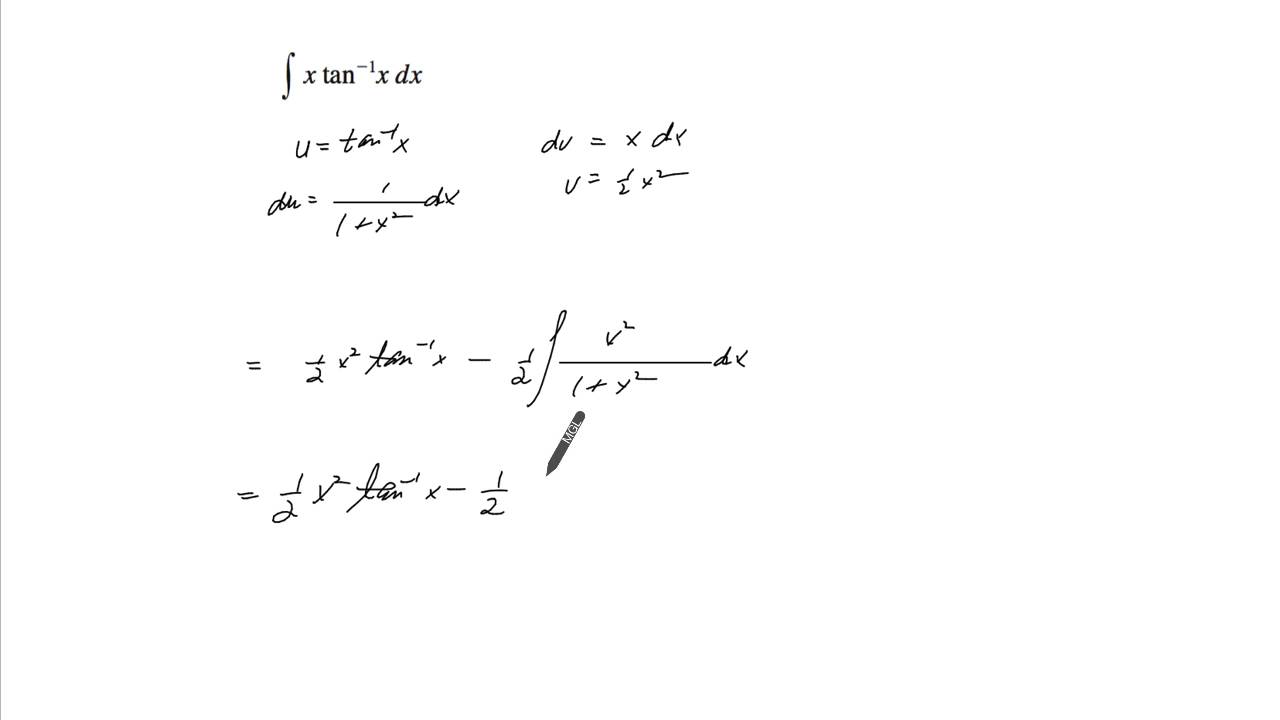 ∫ x tan⁻¹x dx
u = tan⁻¹x dv = x dx
du = 1/(1+x²) dx v = ½ x²
= ½ x² tan⁻¹ x − ½ ∫ x²/(1+x²) dx
MGL
= ½ x² tan⁻¹ x − ½